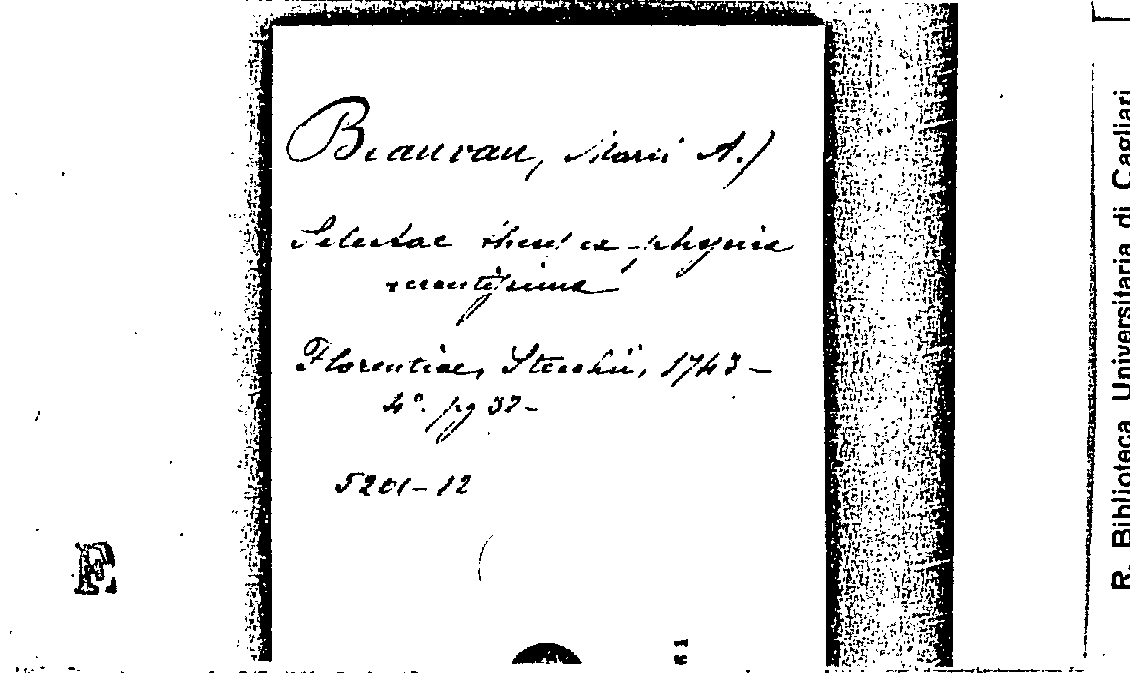 Beauvau, Marii A.)
Selectae theses ex physica
recentissima
Florentiae, Stecchii, 1743 -
4°. pg 32 -
5201 - 12
F
R. Biblioteca Universitaria di Cagliari